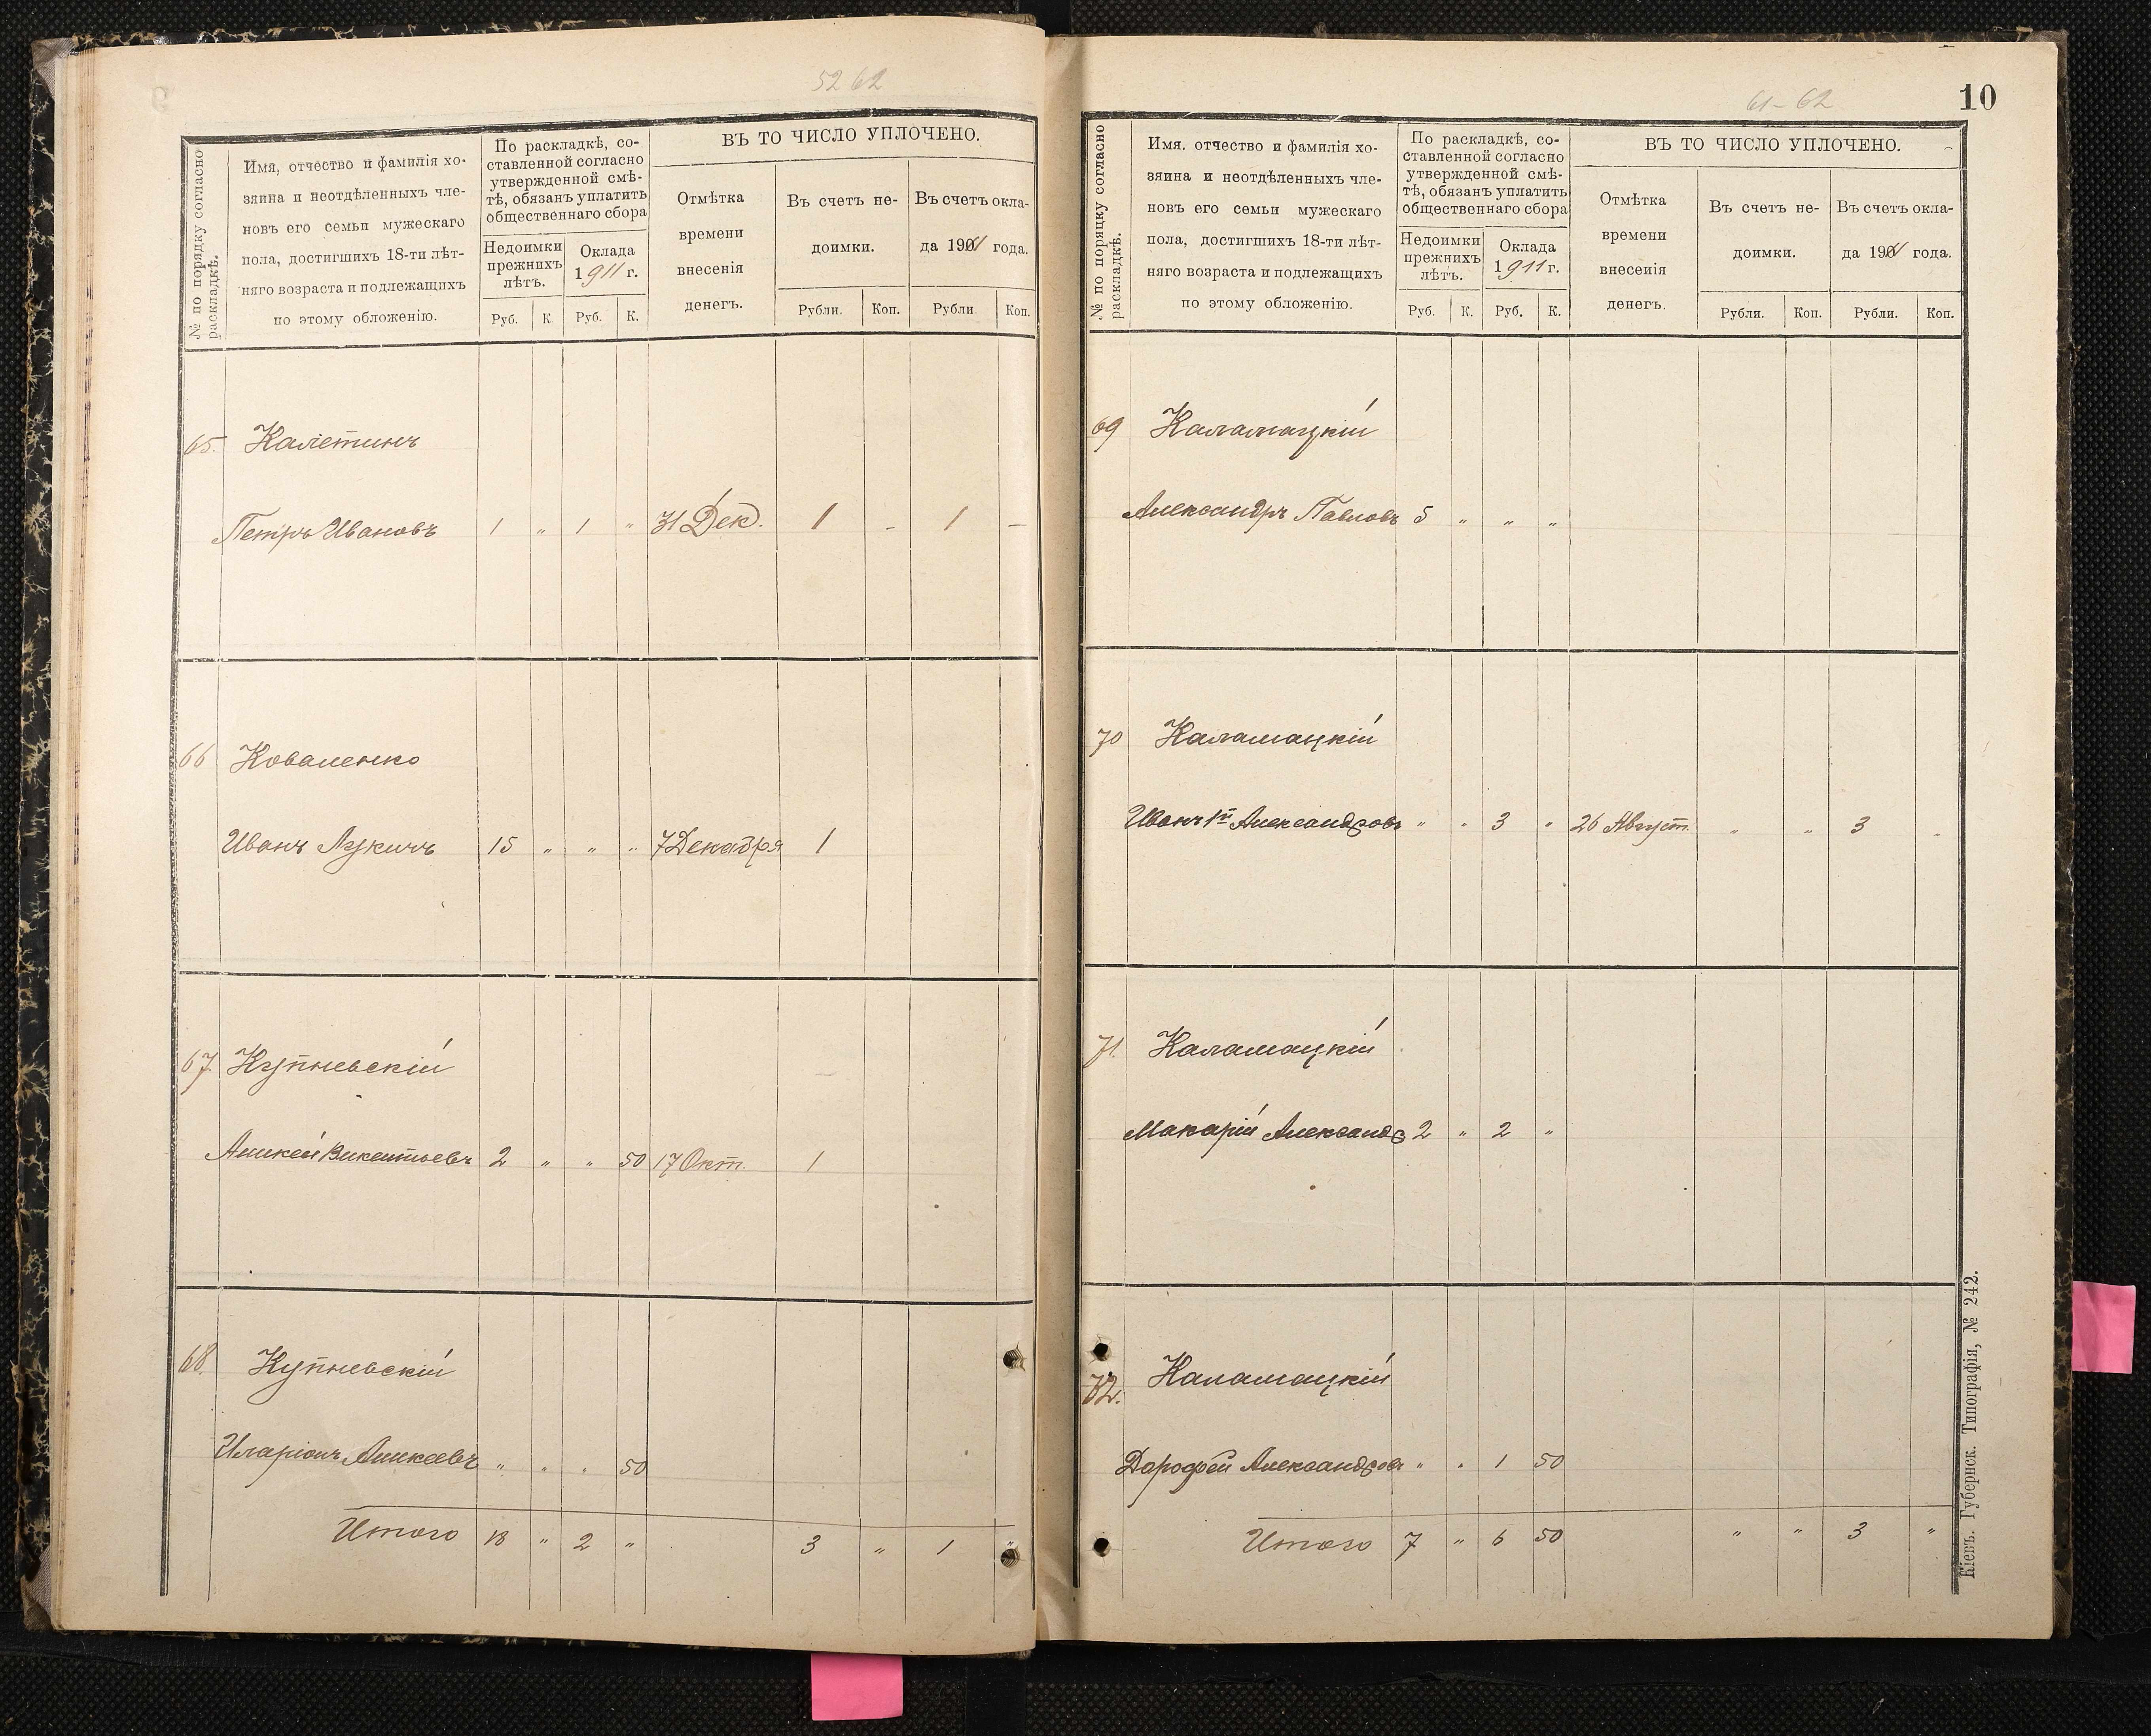 52 62
№ по порядку согласно раскладкѣ.
Имя, отчество и фамилія хо-
зяина и неотдѣленныхъ чле-
новъ его семьи мужескаго
пола, достигшихъ 18-ти лѣт-
няго возраста и подлежащихъ
по этому обложенію.
По раскладкѣ, со-
ставленной согласно
утвержденной смѣ-
тѣ, обязанъ уплатить
общественнаго сбора
Недоимки
прежнихъ
лѣтъ.
Оклада
1911 г.
Руб. К. Руб. К.
ВЪ ТО ЧИСЛО УПЛОЧЕНО.
Отмѣтка
времени
внесенія
денегъ.
Въ счетъ не-
доимки.
Въ счетъ окла-
да 1911 года.
Рубли. Коп. Рубли Коп.
65. Калетинъ
Петръ Ивановъ 1 " 1 " 31 Дек. 1 - 1 -
66 Коваленко
Иванъ Лукичъ 15 " " " 7 Декабря 1
67. Купневскій
Алексей Викентьевъ 2 " " 50 17 Окт. 1
68. Купневскій
Иларіонъ Алексеевъ " " " 50
Итого 18 " 2 " 3 " 1 "
61-62
10
№ по поряцку согласно раскладкѣ.
Имя. отчество и фамилія хо-
зяина и неотдѣленныхъ чле-
новъ его семьи мужескаго
пола, достигшихъ 18-ти лѣт-
няго возраста и подлежащихъ
по этому обложенію.
По раскладкѣ, со-
ставленной согласно
утвержденной смѣ-
тѣ, обязанъ уплатить
общественнаго сбора
Недоимки
прежнихъ
лѣтъ.
Оклада
1911 г.
Руб. К. Руб. К.
ВЪ ТО ЧИСЛО УПЛОЧЕНО.
Отмѣтка
времени
внесенія
денегъ.
Въ счетъ не-
доимки.
Въ счетъ окла-
да 1911 года.
Рубли. Коп. Рубли. Коп.
69 Каламацкій
Александръ Павловъ 5 " " "
70 Каламацкій
Иванъ 1й Александровъ " " 3 " 26 Август. " " 3 "
71. Каламацкій
Макарій Александр 2 " 2 "
72. Каламацкій
Дорофей Александровъ " " 1 50
Итого 7 " 6 50 " " 3 "
Кіевъ. Губернск. Типографія, № 242.